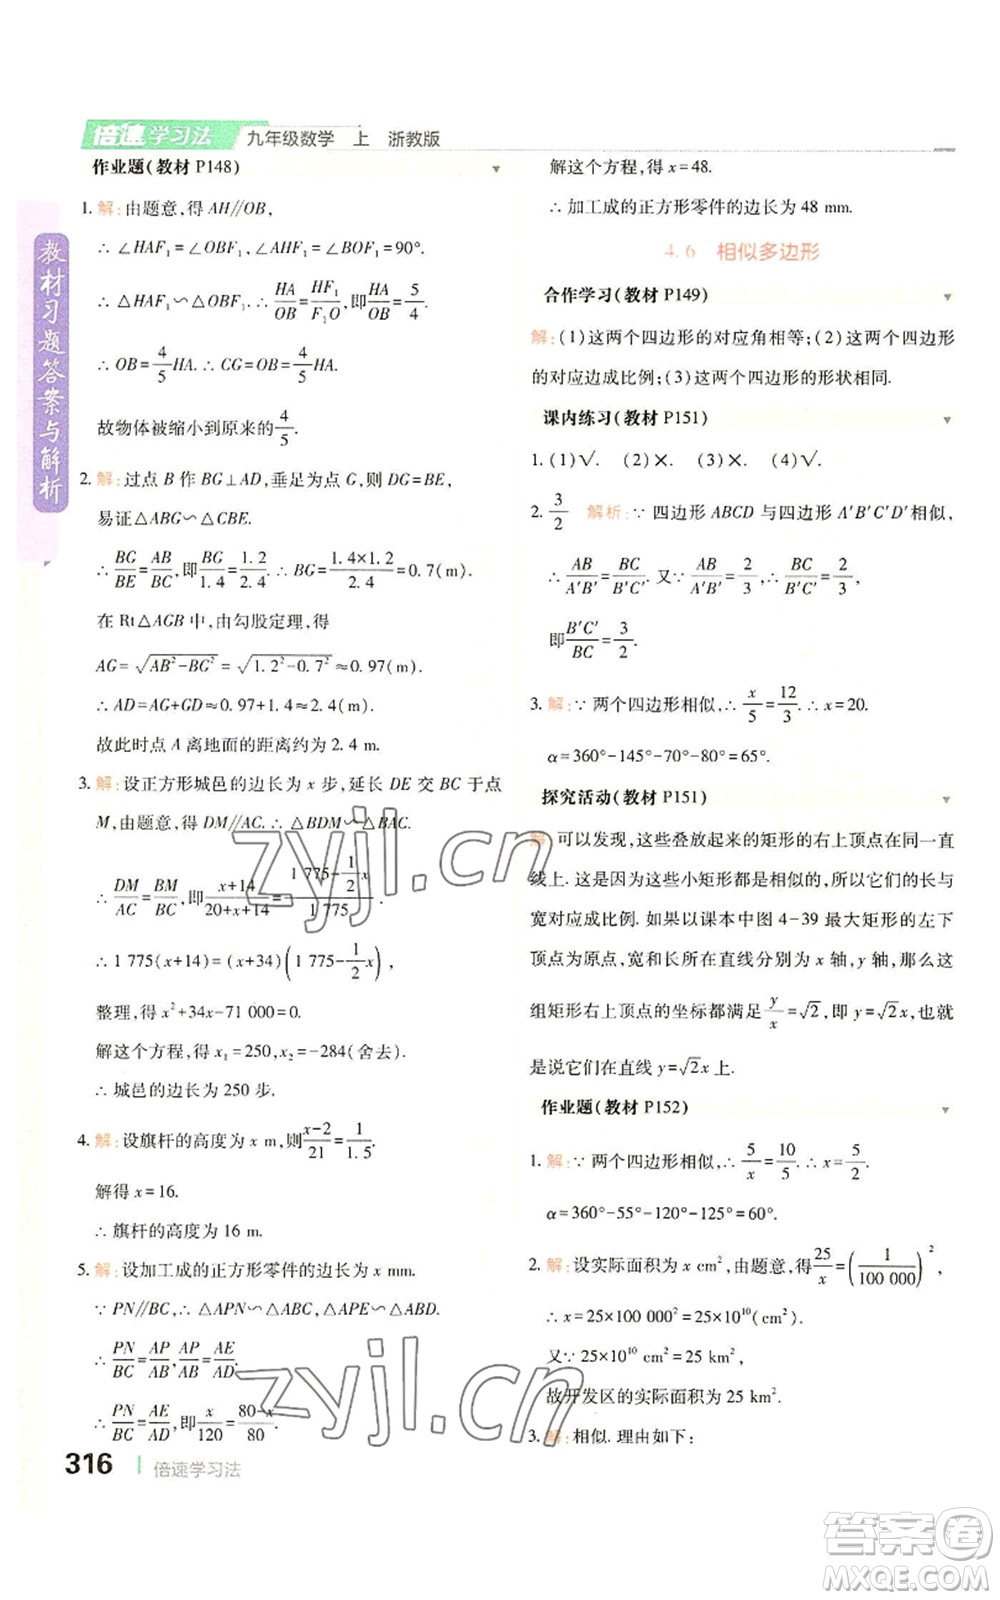 倍速学习法 九年级数学 上 浙教版
教材习题答案与解析
作业题(教材 P148)
1. 解:由题意,得 AH//OB,
∴ ∠HAF₁=∠OBF₁,∠AHF₁=∠BOF₁=90°.
∴ △HAF₁∽△OBF₁. ∴ HA/OB=HF₁/F₁O,即HA/OB=5/4
∴ OB=4/5HA. ∴ CG=4/5HA.
故物体被缩小到原来的4/5.
2. 解:过点 B 作 BG⊥AD,垂足为点 G,则 GD=BE,
易证△ABG∽△CBE.
∴ BG/BE=AB/CB,即BG/1.4=1.2/2.4. ∴ BG=1.4×1.2/2.4=0.7(m).
在 Rt△AGB 中,由勾股定理,得
AG=√(AB²-BG²)=√(1.2²-0.7²)≈0.97(m).
∴ AD=AG+GD≈0.97+1.4≈2.4(m).
故此时点 A 离地面的距离约为 2.4 m.
3. 解:设正方形城邑的边长为 x 步,延长 DE 交 BC 于点
M,由题意,得 DM//AC. ∴ △BDM∽△BAC.
∴ DM/AC=BM/BC,即(x+14)/(20+x+14)=(1 775-1/2x)/1 775
∴ 1 775(x+14)=(x+34)(1 775-1/2x),
整理,得 x²+34x-71 000=0.
解这个方程,得 x₁=250,x₂=-284(舍去).
∴ 城邑的边长为 250 步.
4. 解:设旗杆的高度为 x m,则(x-2)/21=1/1.5.
解得 x=16.
∴ 旗杆的高度为 16 m.
5. 解:设加工成的正方形零件的边长为 x mm.
∵ PN//BC,∴ △APN∽△ABC,△APE∽△ABD.
∴ PN/BC=AP/AB,AP/AB=AE/AD.
∴ PN/BC=AE/AD,即x/120=(80-x)/80
316 倍速学习法
解这个方程,得 x=48.
∴ 加工成的正方形零件的边长为 48 mm.
4.6 相似多边形
合作学习(教材 P149)
解:(1)这两个四边形的对应角相等;(2)这两个四边形
的对应边成比例;(3)这两个四边形的形状相同.
课内练习(教材 P151)
1. (1)√. (2)×. (3)×. (4)√.
2. 3/2 解析:∵ 四边形 ABCD 与四边形 A'B'C'D'相似,
∴ AB/A'B'=BC/B'C'. 又∵ AB/A'B'=2/3,∴ BC/B'C'=2/3,
即B'C'/BC=3/2.
3. 解:∵ 两个四边形相似,∴ x/5=12/3. ∴ x=20.
α=360°-145°-70°-80°=65°.
探究活动(教材 P151)
解:可以发现,这些叠放起来的矩形的右上顶点在同一直
线上. 这是因为这些小矩形都是相似的,所以它们的长与
宽对应成比例. 如果以课本中图 4-39 最大矩形的左下
顶点为原点,宽和长所在直线分别为 x 轴,y 轴,那么这
组矩形右上顶点的坐标都满足y/x=√2,即 y=√2x,也就
是说它们在直线 y=√2x 上.
作业题(教材 P152)
1. 解:∵ 两个四边形相似,∴ 5/x=10/5. ∴ x=5/2.
α=360°-55°-120°-125°=60°.
2. 解:设实际面积为 x cm²,由题意,得25/x=(1/100 000)²
∴ x=25×100 000²=25×10¹⁰(cm²).
又∵ 25×10¹⁰ cm²=25 km²,
故开发区的实际面积为 25 km².
3. 解:相似. 理由如下:
zyjl.cn
zyjl.cn
答案圈
MXQE.COM